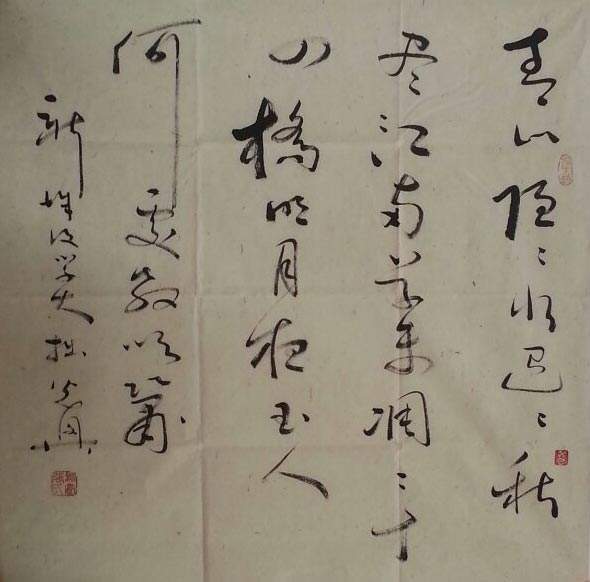 青山隐〻水迢〻秋
尽江南草未凋二十
四桥明月夜玉人
何处教吹箫
学大拙